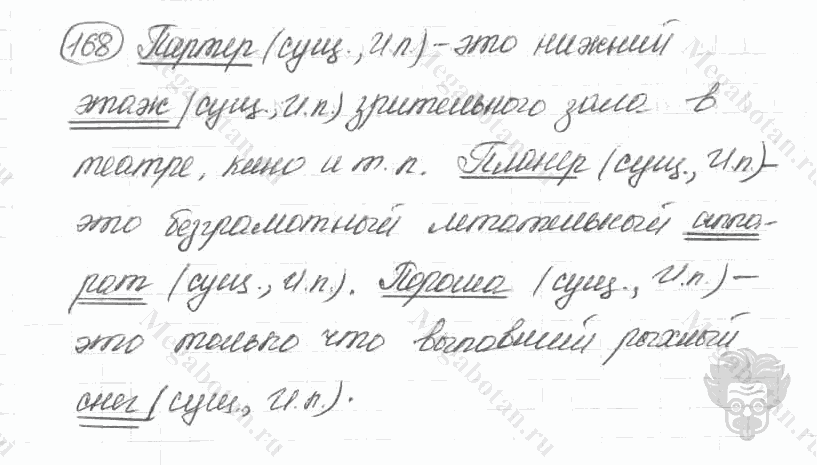 168 Партер (сущ., И.п.) - это нижний
этаж (сущ., И.п.) зрительного зала в
театре, кино и т.п. Планер (сущ., И.п.) -
это безграмотный летательный аппа-
рат (сущ., И.п.). Пороша (сущ., И.п.) -
это только что выпавший рыхлый
снег (сущ., И.п.).
Megabotan.ru